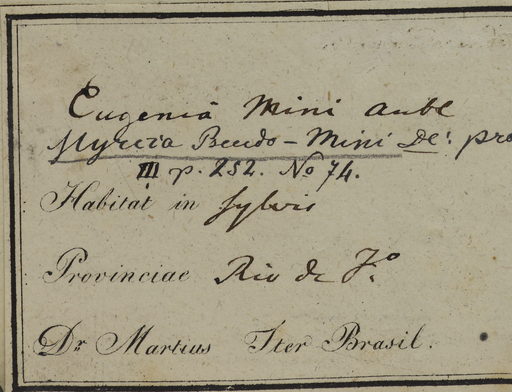 Eugenia Mini Aubl
Myrcia Pseudo-Mini DC: pro
III p. 252. No 74.
Habitat in sylvis
Provinciae Rio de Jo.
Dr Martius Iter Brasil.